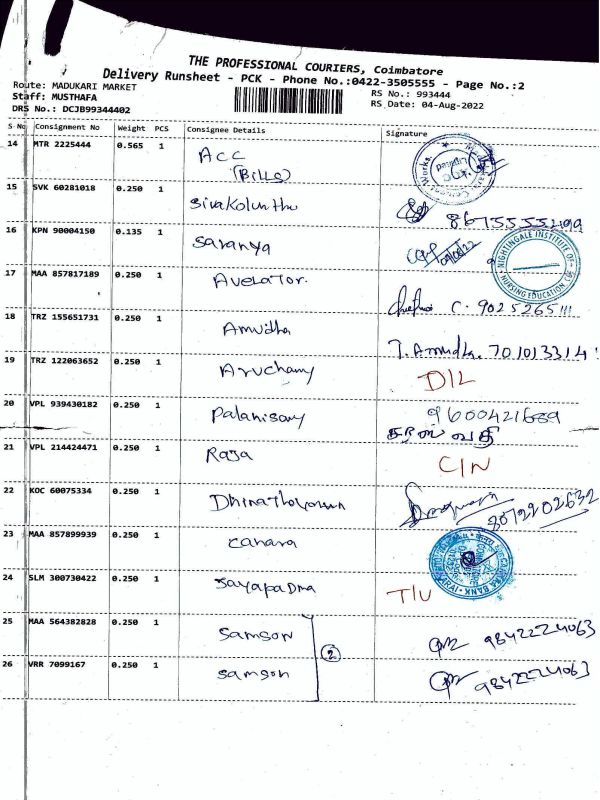 THE PROFESSIONAL COURIERS, Coimbatore
Delivery Runsheet - PCK - Phone No.:0422-3505555 - Page No.:2
Route: MADUKARI MARKET RS No.: 993444
Staff: MUSTHAFA RS Date: 04-Aug-2022
DRS No.: DCJB99344402
S No Consignment No Weight PCS Consignee Details Signature
14 MTR 2225444 0.565 1 ACC
(Bills)
15 SVK 60281018 0.250 1 Sivakolunthu
16 KPN 90004150 0.135 1 Saranya
NIGHTINGALE INSTITUTE OF NURSING EDUCATION
17 MAA 857817189 0.250 1 Avelator.
C. 9025265111
18 TRZ 155651731 0.250 1 Amudha
T. Amudha. 7010133141
19 TRZ 122063652 0.250 1 Aruchamy D/L
20 VPL 939430182 0.250 1 Palanisamy 9600421689
சரஸ்வதி
21 VPL 214424471 0.250 1 Raja C/N
22 KOC 60075334 0.250 1 8072202632
23 MAA 857899939 0.250 1 canara
CANARA BANK
24 SLM 300730422 0.250 1 T/U
25 MAA 564382828 0.250 1 samson 9842224063
2
26 VRR 7099167 0.250 1 samson 9842224063